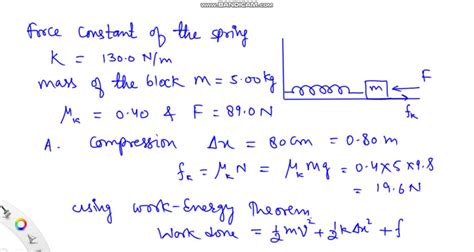 WWW.BANDICAM.COM
Force constant of the spring
K = 130.0 N/m
mass of the block m = 5.00 kg
μk = 0.40 & F = 89.0 N
m
F
fk
A. Compression Δx = 80 cm = 0.80 m
fk = μk N = μk mg = 0.4×5×9.8
= 19.6 N
using work-Energy Theorem
Work done = ½mv² + ½kΔx² + f